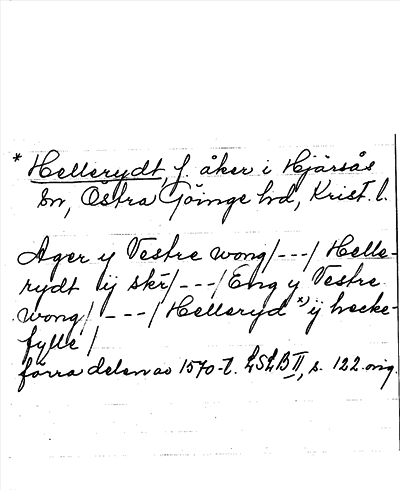 * Hellerydt, f. åker i Hjärsås
sn, Östra Göinge hd, Krist. l.
Ager y Vestre wong/---/ Helle-
rydt ij skr/---/ Eng y Vestre
wong/ ---/ Helleryd x) ij hecke-
fylle/
förra delen av 1570-t. LSLB II, s. 122. orig.